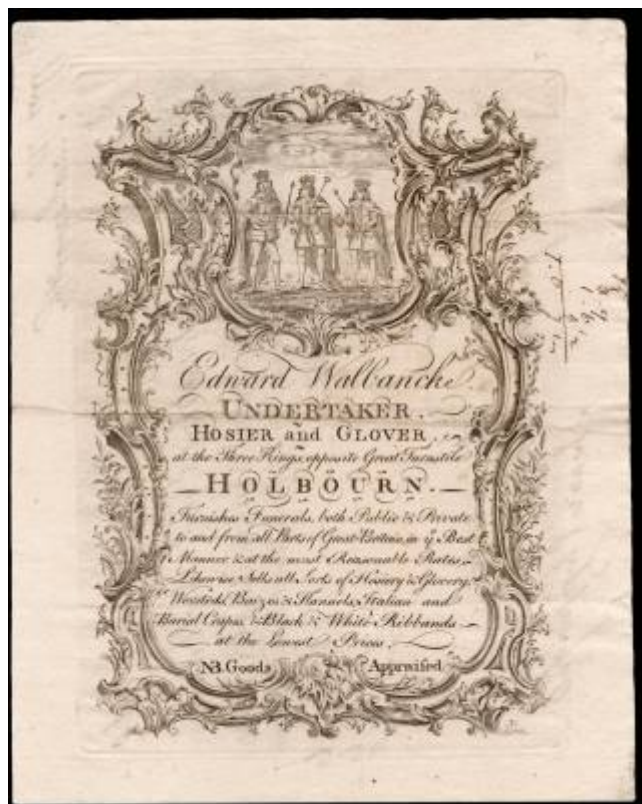 Edward Walbancke
UNDERTAKER,
HOSIER and GLOVER,
at the Three Kings, opposite Great Turnstile
HOLBOURN.
Furnishes Funerals, both Public & Private
to and from all Parts of Great-Britain, in ye Best
Manner & at the most Reasonable Rates,
Likewise Sells all Sorts of Hosiery & Glovery,
Worsteds, Baizes & Flannels, Italian and
Burial Crapes, & Black & White Ribbands
at the Lowest Prices.
NB. Goods Appraised